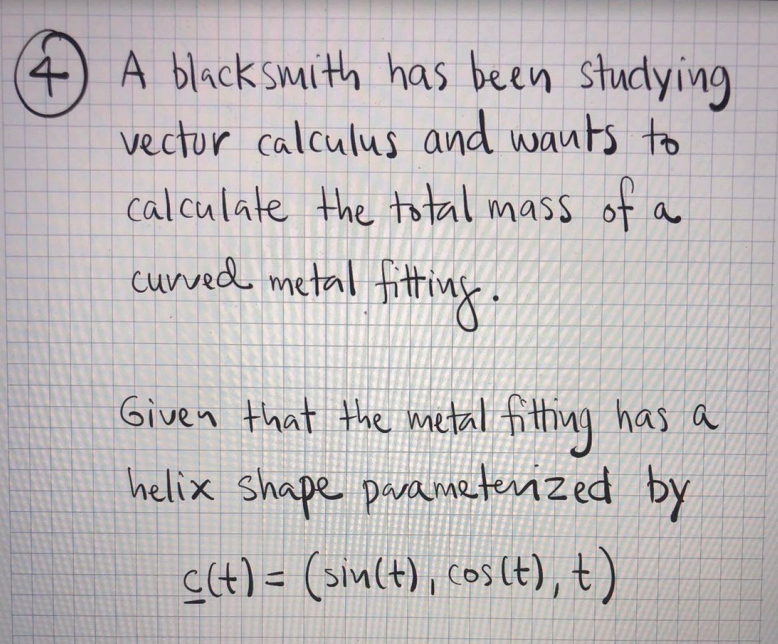 4 A blacksmith has been studying
vector calculus and wants to
calculate the total mass of a
curved metal fitting.
Given that the metal fitting has a
helix shape parameterized by
c(t) = (sin(t), cos(t), t)